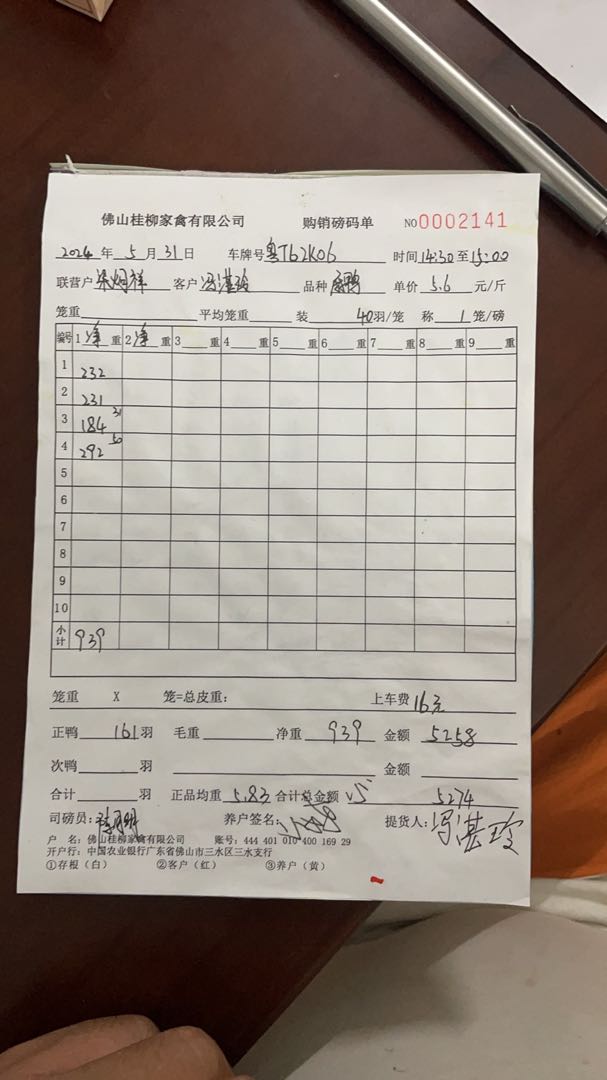 佛山桂柳家禽有限公司 购销磅码单 NO 0002141
2024 年 5 月 31 日 车牌号 粤T62K06 时间 14:30 至 15:00
联营户 客户 冯湛玲 品种 单价 5.6 元/斤
笼重 平均笼重 装 40 羽/笼 称 1 笼/磅
编号 1 净 重 2 净 重 3 重 4 重 5 重 6 重 7 重 8 重 9 重
1 232
2 231
3 184 31
4 292 50
5
6
7
8
9
10
小计 939
笼重 X 笼=总皮重: 上车费 16元
正鸭 161 羽 毛重 净重 939 金额 5258
次鸭 羽 金额
合计 羽 正品均重 5.83 合计总金额 5274
司磅员: 养户签名: 提货人: 冯湛玲
户 名: 佛山桂柳家禽有限公司 账号: 444 401 010 400 169 29
开户行: 中国农业银行广东省佛山市三水区三水支行
①存根(白) ②客户(红) ③养户(黄)